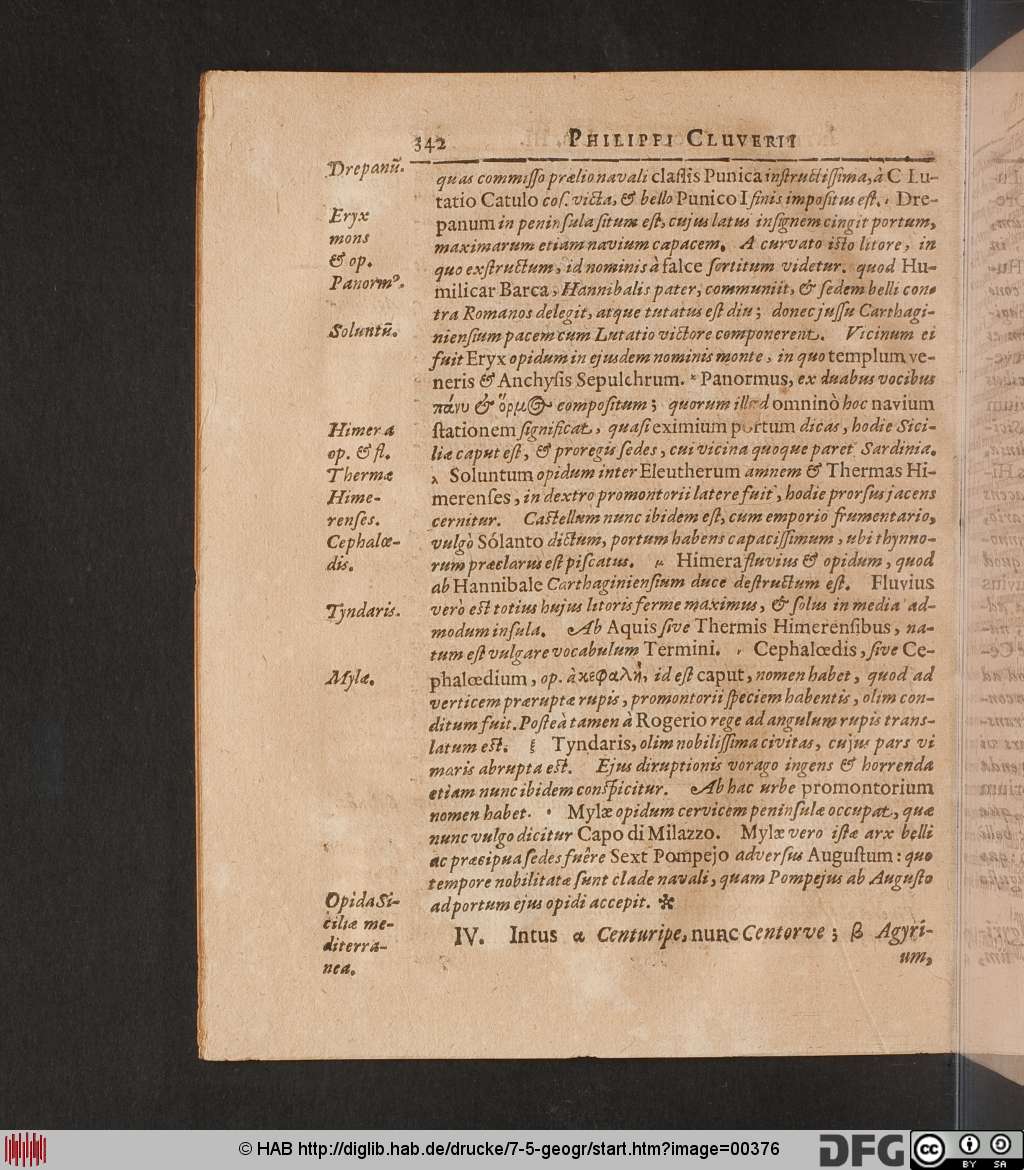 342 PHILIPPI CLUVERII
Drepanū.
Eryx
mons
& op.
Panormꝰ.
Soluntū.
Himera
op. & fl.
Thermæ
Hime-
renses.
Cephalœ-
dis.
Tyndaris.
Mylæ.
Opida Si-
ciliæ me-
diterra-
nea.
quas commisso prælio navali claſſis Punica inſtructiſſima, à C Lu-
tatio Catulo coſ. victa, & bello Punico I finis impoſitus eſt. ι Dre-
panum in peninſula ſitum eſt, cujus latus inſignem cingit portum,
maximarum etiam navium capacem. A curvato iſto litore, in
quo exſtructum, id nominis à falce ſortitum videtur. quod Hu-
milicar Barca, Hannibalis pater, communiit, & ſedem belli con-
tra Romanos delegit, atque tutatus eſt diu; donec juſſu Carthagi-
nienſium pacem cum Lutatio victore componerent. Vicinum ei
fuit Eryx opidum in ejusdem nominis monte, in quo templum ve-
neris & Anchyſis Sepulchrum. ϰ Panormus, ex duabus vocibus
πάνυ & ὅρμος compoſitum; quorum illud omninò hoc navium
ſtationem ſignificat, quaſi eximium portum dicas, hodie Sici-
liæ caput eſt, & proregis ſedes, cui vicina quoque paret Sardinia.
λ Soluntum opidum inter Eleutherum amnem & Thermas Hi-
merenſes, in dextro promontorii latere fuit, hodie prorſus jacens
cernitur. Caſtellum nunc ibidem eſt, cum emporio frumentario,
vulgò Sólanto dictum, portum habens capaciſſimum, ubi thynno-
rum præclarus eſt piſcatus. μ Himera fluvius & opidum, quod
ab Hannibale Carthaginienſium duce deſtructum eſt. Fluvius
verò eſt totius hujus litoris ferme maximus, & ſolus in media ad-
modum inſula. Ab Aquis ſive Thermis Himerenſibus, na-
tum eſt vulgare vocabulum Termini. ν Cephalœdis, ſive Ce-
phalœdium, op. à κεφαλῆ, id eſt caput, nomen habet, quod ad
verticem præruptæ rupis, promontorii ſpeciem habentis, olim con-
ditum fuit. Poſteà tamen à Rogerio rege ad angulum rupis trans-
latum eſt. ξ Tyndaris, olim nobiliſſima civitas, cujus pars vi
maris abrupta eſt. Ejus diruptionis vorago ingens & horrenda
etiam nunc ibidem conſpicitur. Ab hac urbe promontorium
nomen habet. ο Mylæ opidum cervicem peninſulæ occupat, quæ
nunc vulgo dicitur Capo di Milazzo. Mylæ vero iſtæ arx belli
ac præcipua ſedes fuêre Sext Pompejo adverſus Auguſtum: quo
tempore nobilitatæ ſunt clade navali, quam Pompejus ab Auguſto
ad portum ejus opidi accepit. *
IV. Intus α Centuripe, nunc Centorve; β Agyri-
um,
© HAB http://diglib.hab.de/drucke/7-5-geogr/start.htm?image=00376
DFG
cc
BY SA